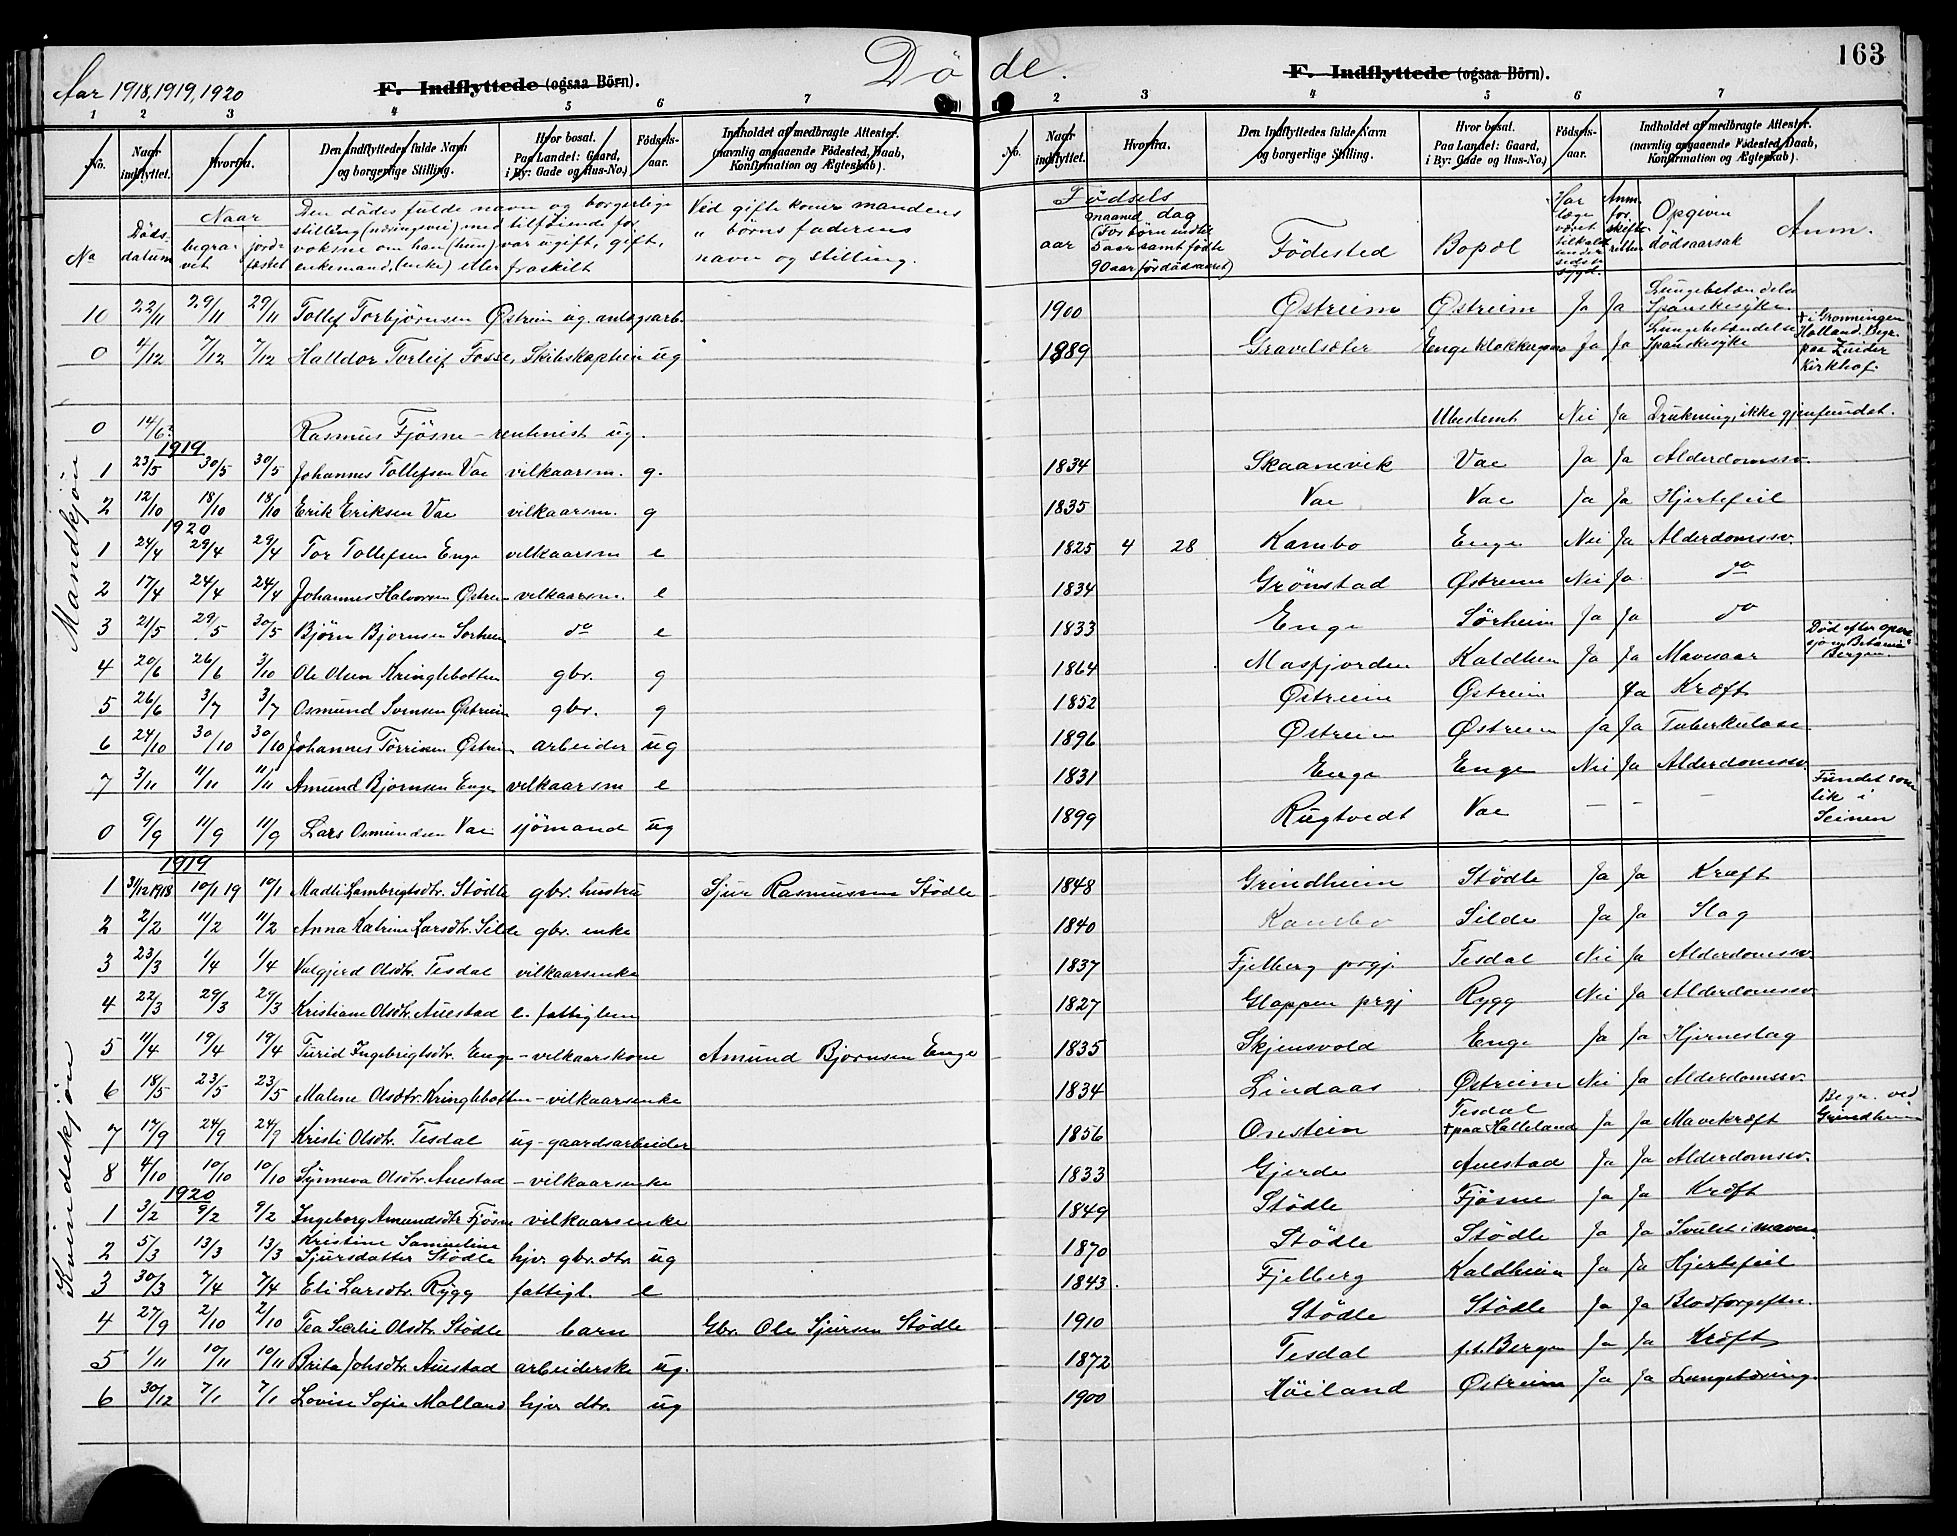 Aar 1918, 1919, 1920
Döde.
163
F. Indflyttede (ogsaa Börn).
1 2 3 4 5 6 7
No. Naar indflyttet. Hvorfra. Den Indflyttedes fulde Navn og borgerlige Stilling. Hvor bosat. Paa Landet: Gaard, i By: Gade og Hus-No.) Fødsels-aar. Indholdet af medbragte Attester. (navnlig angaaende Födested, Daab, Konfirmation og Ægteskab).
F. Indflyttede (ogsaa Börn).
2 3 4 5 6 7
No. Naar indflyttet. Hvorfra. Den Indflyttedes fulde Navn og borgerlige Stilling. Hvor bosat. Paa Landet: Gaard, i By: Gade og Hus-No.) Födsels-aar. Indholdet af medbragte Attester. (navnlig angaaende Födested, Daab, Konfirmation og Ægteskab).
No Döds-datum Naar begravet jordfæstet Den dödes fulde navn og borgerlige stilling (næringsvei) med tilföiende for voksne om han (hun) var ugift, gift, enkemand (enke) eller fraskilt Ved gifte koner mandens " börns faderens navn og stilling.
Födsels aar maaned dag (For börn indtil 5 aar samt födte 90 aar för dödsaaret) Födested Bopæl Har læge været tilkaldt under sidste sygd. Anm. for skifteretten Opgiven dödsaarsak Anm.
Mandkjön
10 22/11 29/11 29/11 Tollef Torbjörnsen Östreim ug. anlegsarb. 1900 Östreim Östreim Ja Ja Lungebetændelse Spanskesyke
0 4/12 7/12 7/12 Halldor Torleif Fosse, Skibskaptein ug 1889 Gravelsæter Enge Ja Ja Lungebetændelse Spanskesyke † i Gronningen Holland. Begr. paa Zuider Kirkhof.
0 14/6? Rasmus Fjösne - rentenist ug. Ubestemt Nei Ja Drukning, ikke gjenfundet.
1919
1 23/5 30/5 30/5 Johannes Tollefsen Vae vilkaarsm. g. 1834 Skaanevik Vae Ja Ja Alderdomssv.
2 12/10 18/10 18/10 Erik Eriksen Vae vilkaarsm. g 1835 Vae Vae Ja Ja Hjertefeil
1920
1 24/4 29/4 29/4 Tor Tollefsen Enge vilkaarsm e 1825 4 28 Kambo Enge Nei Ja Alderdomssv.
2 17/4 24/4 24/4 Johannes Halvorsen Östreim vilkaarsm. e 1834 Grönstad Östreim Nei Ja do
3 21/5 29/5 30/5 Björn Bjornsen Sorheim do e 1833 Enge Sörheim Ja Ja do
4 20/6 26/6 3/10 Ole Olsen Kringlebotten gbr. g 1864 Masfjorden Kaldheim Ja Ja Mavesaar Död efter operasjon Betania Bergen.
5 26/6 3/7 3/7 Osmund Svensen Östreim gbr. g 1852 Östreim Östreim Ja Kræft
6 24/10 30/10 30/10 Johannes Törrisen Östreim arbeider ug 1896 Östreim Östreim Ja Ja Tuberkulose
7 3/11 11/11 11/11 Amund Bjornsen Enge vilkaarsm e 1831 Enge Enge Nei Ja Alderdomssv.
0 9/9 11/9 11/9 Lars Osmundsen Vae sjömand ug 1899 Rugtvedt Vae — — — Fundet som lik i Seinen
Kvindekjön
1919
1 31/12 1918 10/1 19 10/1 Madli Lambrigtsdtr. Stödle gbr. hustru Sjur Rasmussen Stödle 1848 Grindheim Stödle Ja Ja Kræft
2 2/2 11/2 11/2 Anna Katrine Larsdtr. Silde gbr. enke 1840 Kambo Silde Ja Ja Slag
3 23/3 1/4 1/4 Valgjerd Olsdtr. Tesdal vilkaarsenke 1837 Fjelberg prgj. Tesdal Nei Ja Alderdomssv.
4 22/3 29/3 29/3 Kristiane Olsdtr. Auestad e. fattiglem 1827 Gloppen prgj Rygg Nei Ja Alderdomssv.
5 11/4 19/4 19/4 Turid Ingebrigtsdtr. Enge - vilkaarskone Amund Bjornsen Enge 1835 Skjensvold Enge Ja Ja Hjerneslag
6 18/5 23/5 23/5 Malene Olsdtr. Kringlebotten - vilkaarsenke 1834 Lindaas Östreim Nei Ja Alderdomssv.
7 17/9 24/9 24/9 Kristi Olsdtr. Tesdal ug - gaardsarbeider 1856 Onstein Tesdal † paa Halleland Ja Ja Mavekræft Begr. ved Grindheim
8 4/10 10/10 10/10 Synneva Olsdtr. Auestad - vilkaarsenke 1833 Gjerde Auestad Ja Ja Alderdomssv.
1920
1 3/2 9/2 9/2 Ingeborg Amundsdtr Fjösne vilkaarsenke 1849 Stödle Fjösne Ja Ja Kræft
2 5/3 13/3 13/3 Kristine Sameline Sjursdatter Stödle hjv. gbr. dtr. ug 1870 Stödle Stödle Ja Ja Svulst i maven
3 30/3 7/4 7/4 Eli Larsdtr. Rygg fattigl. e 1843. Fjelberg Kaldheim Ja Ja Hjertefeil
4 27/9 2/10 2/10 Tea Secilie Olsdtr. Stödle barn Gbr. Ole Sjursen Stödle 1910 Stödle Stödle Ja Ja Blodforgiftn.
5 1/11 10/11 10/11 Brita Johsdtr. Auestad arbeiderske ug. 1872 Tesdal f.t. Bergen Ja Ja Kræft
6 30/12 7/1 7/1 Lovise Sofie Molland hjv. dtr. ug 1900 Höiland Östreim Ja Ja Lungetæring.